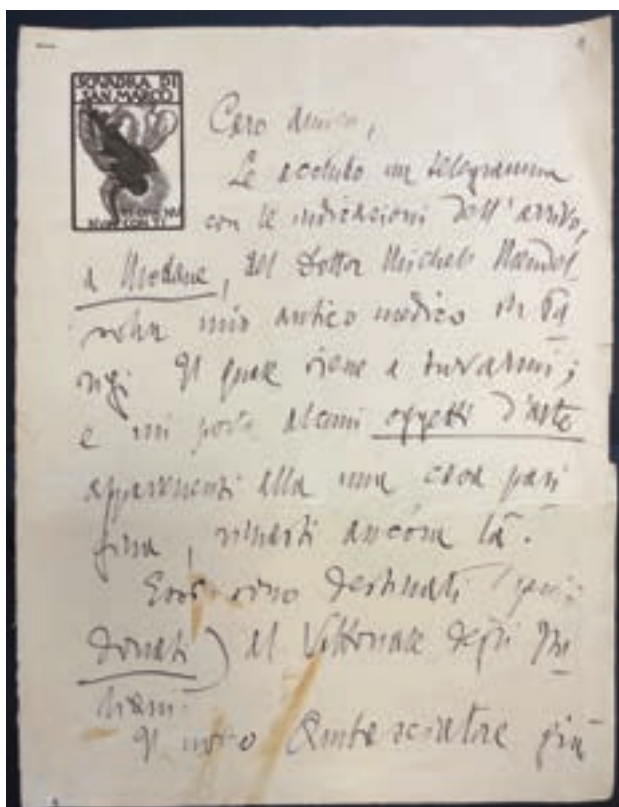 SQVADRA DI
SAN MARCO
Caro amico,
Le accludo un telegramma
con le indicazioni dell'arrivo,
a Modane, del Dottor Michele
mio antico medico di Pa
rigi. Il quale viene a curarmi;
e mi porta alcuni oggetti d'arte
appartenenti alla mia casa pari
gina, rimasti ancóra là.
Essi sono destinati
donati) al Vittoriale degli Ita
liani.
Il novo Ambasciatore già